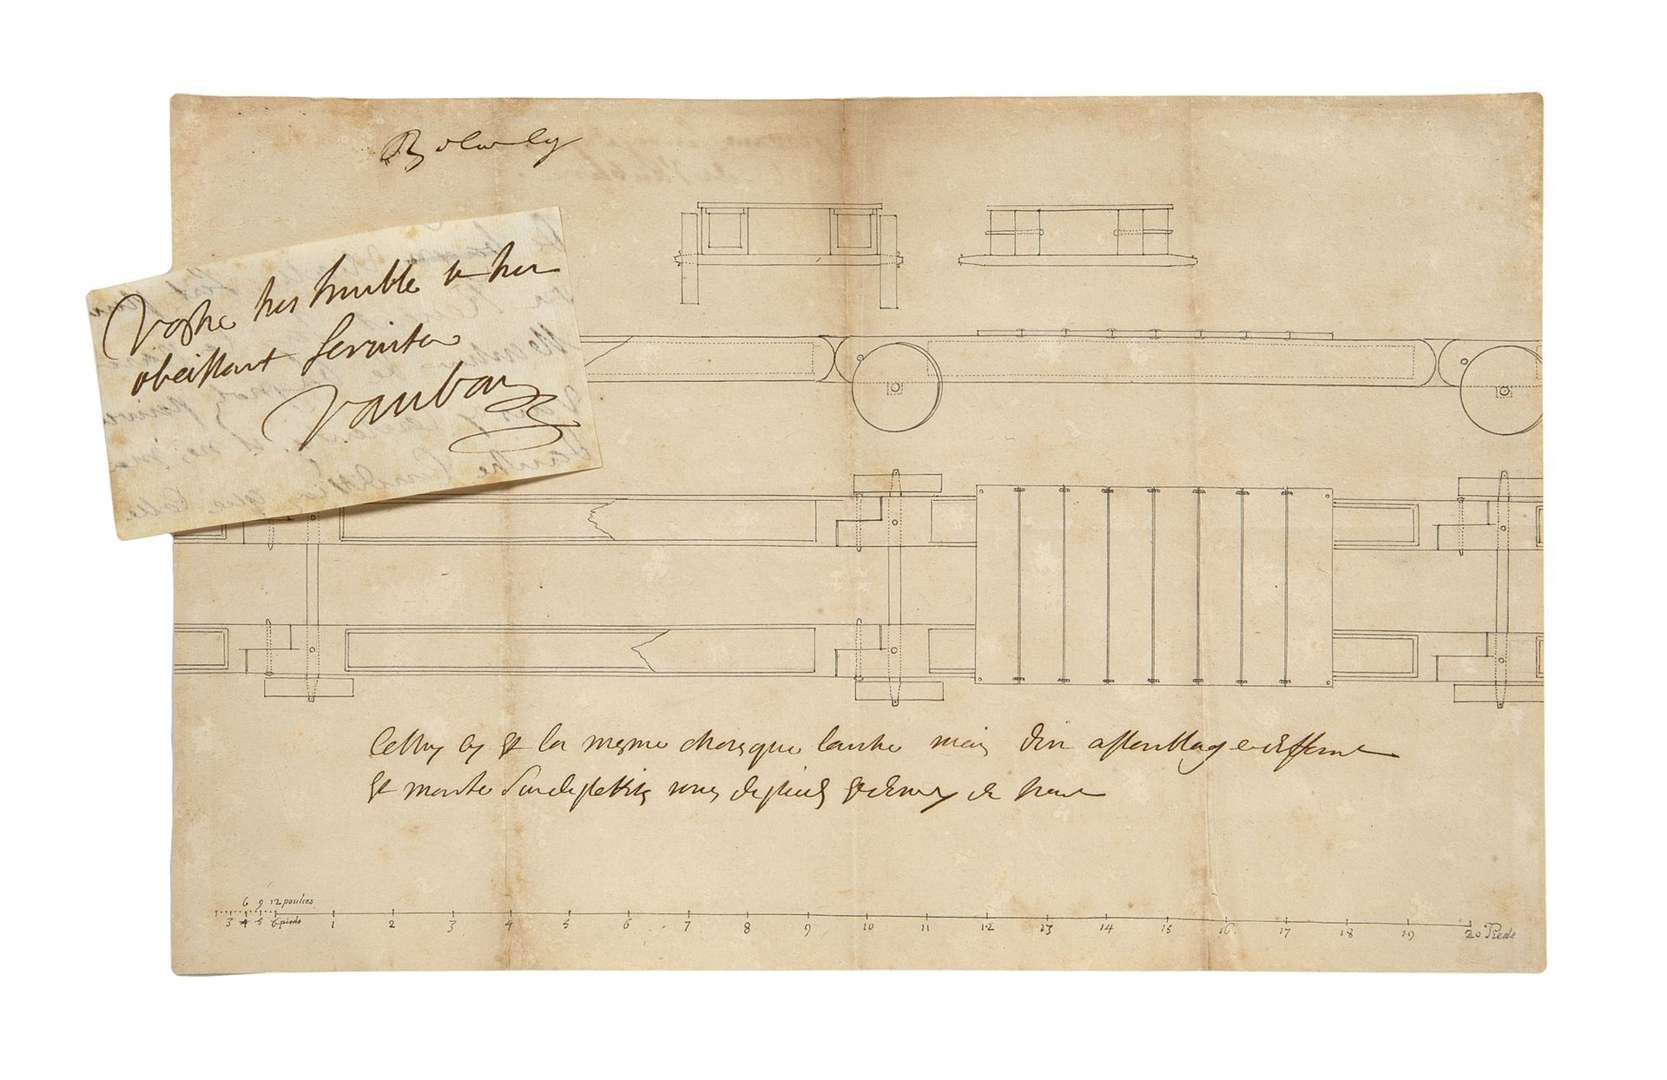 Vostre tres humble et tres
obeissant serviteur
Vauban
Cettuy cy est la mesme chose que lautre mais d'un assemblage different
et monté sur de petites roues de pied et demy de haut
6 9 12 poulces
3 4 5 6 pieds 1 2 3 4 5 6 7 8 9 10 11 12 13 14 15 16 17 18 19 20 Pieds